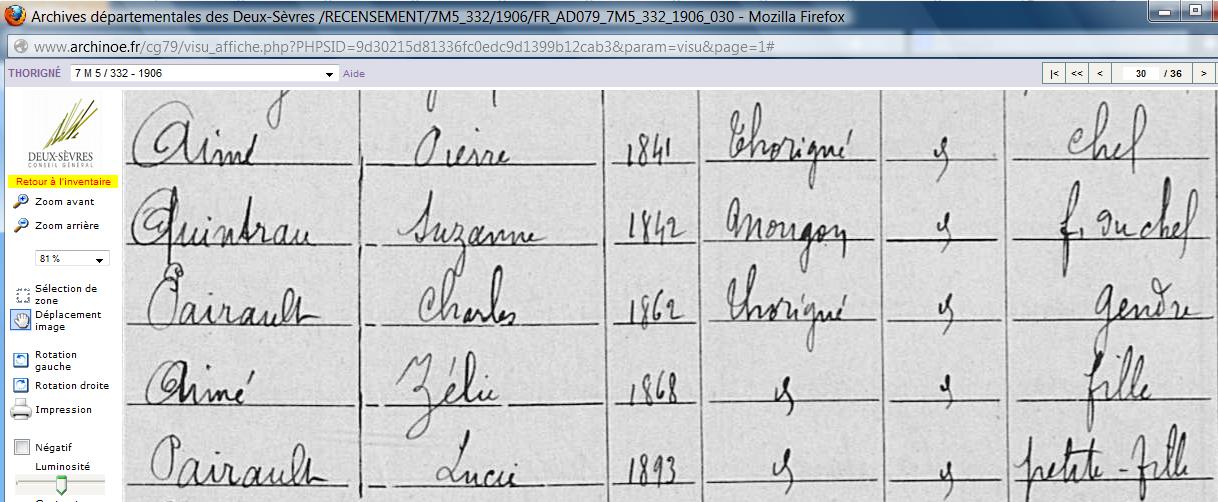 Archives départementales des Deux-Sèvres /RECENSEMENT/7M5_332/1906/FR_AD079_7M5_332_1906_030 - Mozilla Firefox
www.archinoe.fr/cg79/visu_affiche.php?PHPSID=9d30215d81336fc0edc9d1399b12cab3&param=visu&page=1#
THORIGNÉ 7 M 5 / 332 - 1906 Aide |< << < 30 / 36 >
DEUX-SÈVRES
CONSEIL GÉNÉRAL
Retour à l'inventaire
Zoom avant
Zoom arrière
81 %
Sélection de
zone
Déplacement
image
Rotation
gauche
Rotation droite
Impression
Négatif
Luminosité
Aimé Pierre 1841 Thorigné chef
Quintrau Suzanne 1842 Mougon f. du chef
Pairault Charles 1862 Thorigné gendre
Aimé Zélie 1868 fille
Pairault Lucie 1893 petite-fille